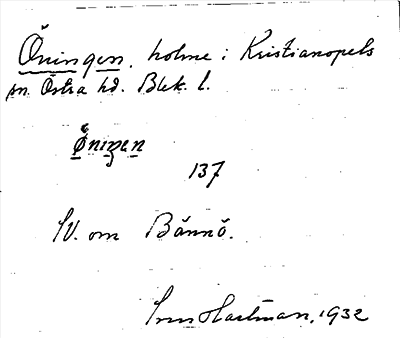 Öningen, holme i Kristianopels
sn. Östra hd. Blek. l.
137
SV. om Bännö.
Hartman, 1932